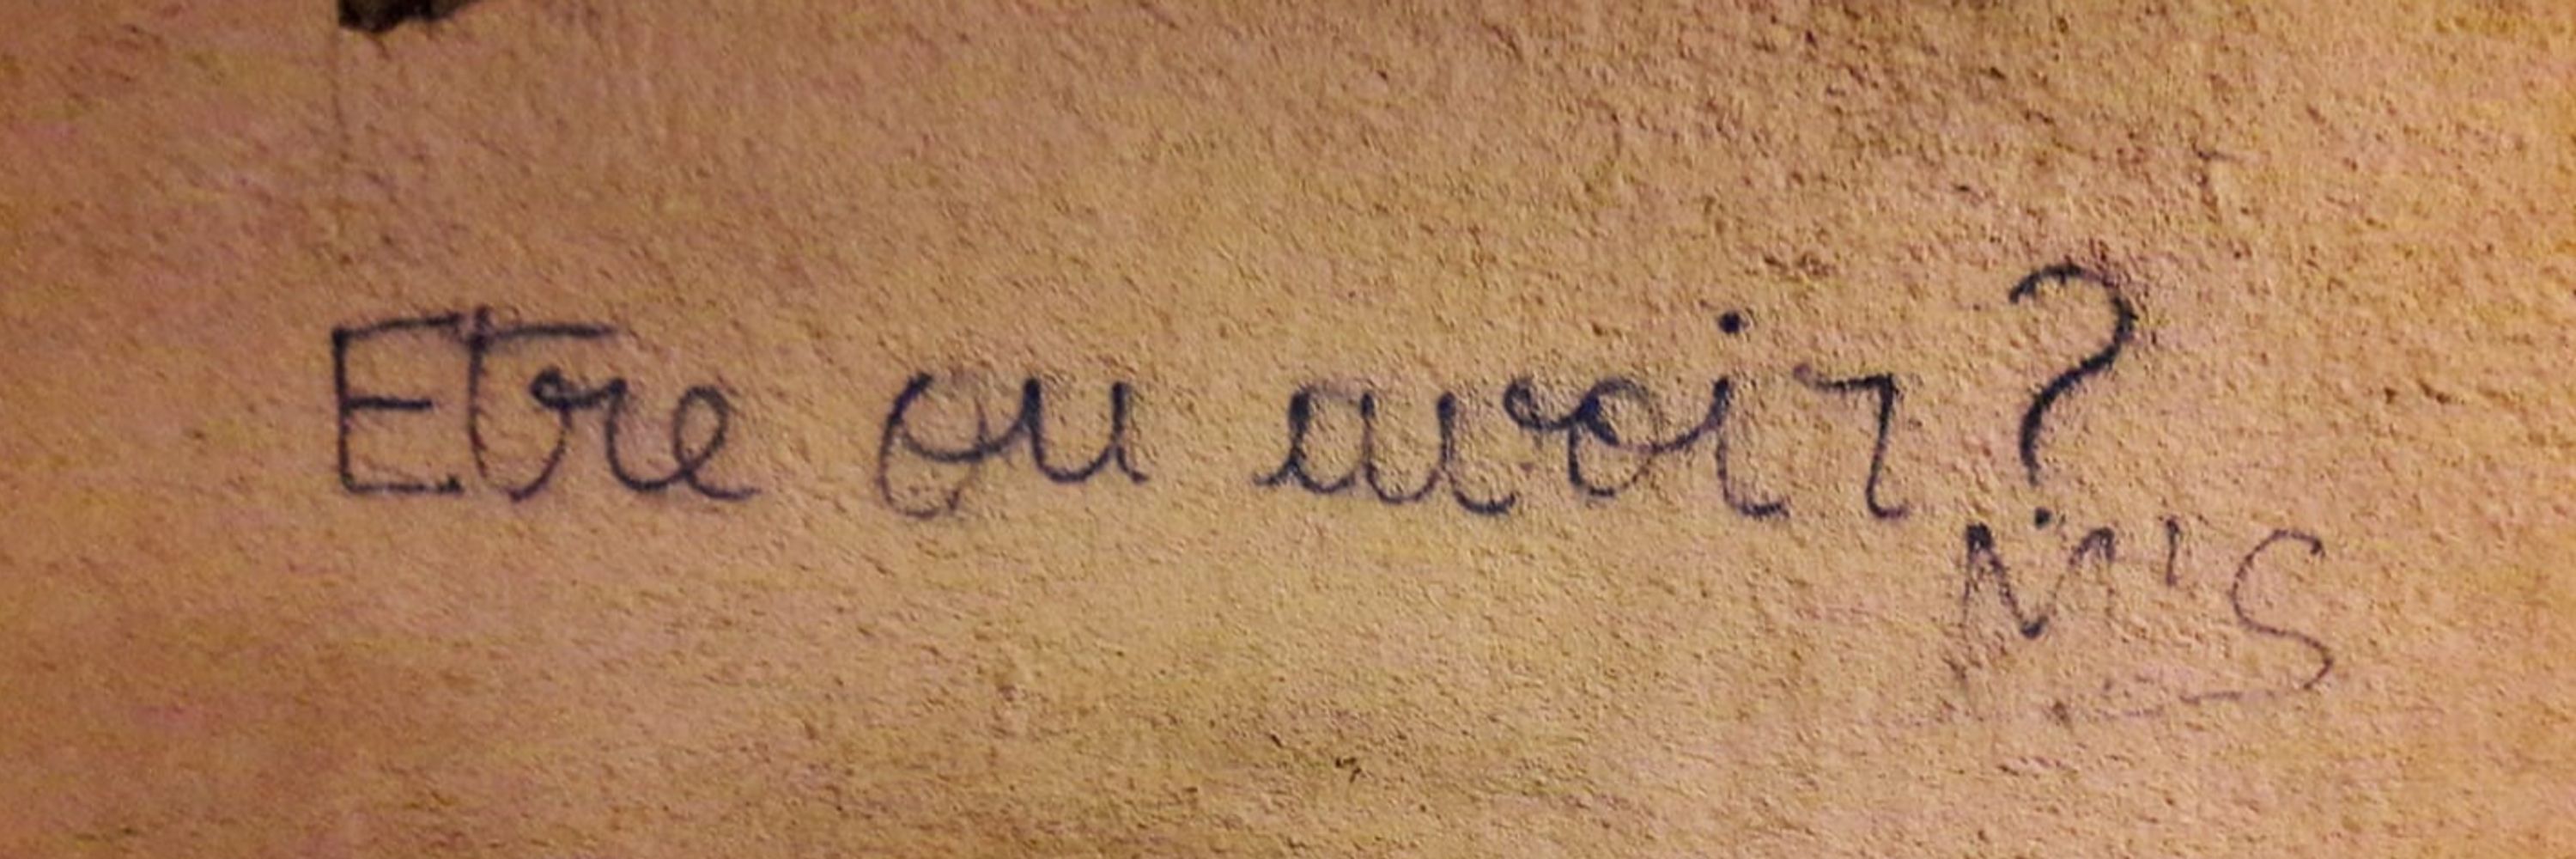 Etre ou avoir ?
M'S